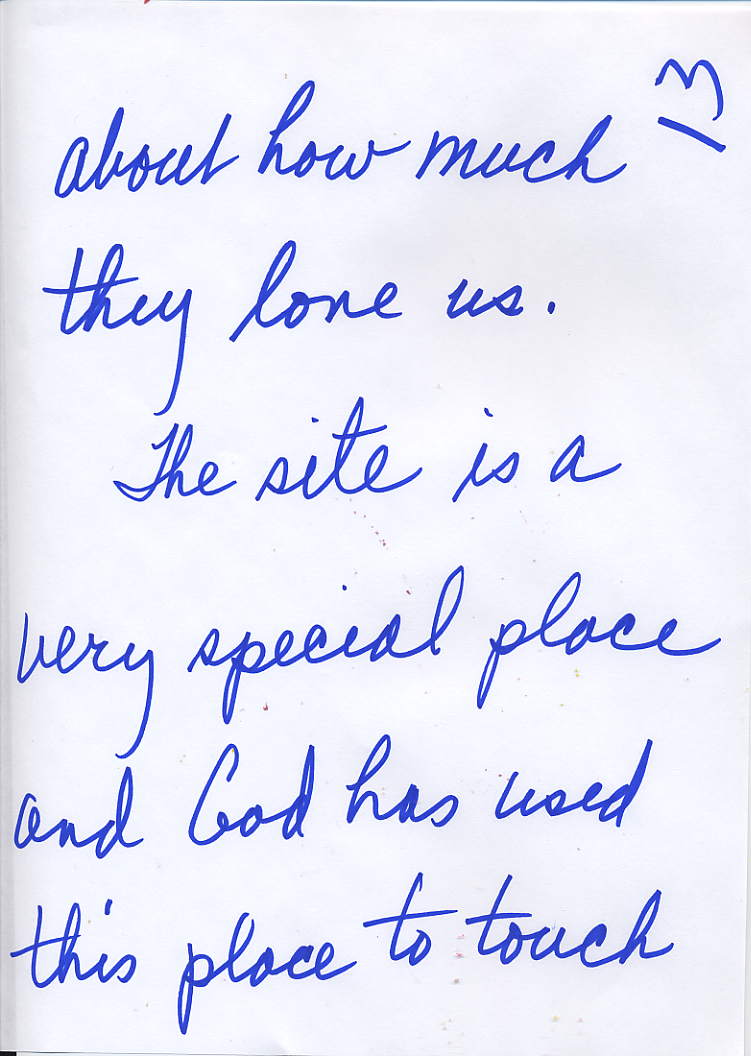 13
about how much
they love us.
The site is a
very special place
and God has used
this place to touch